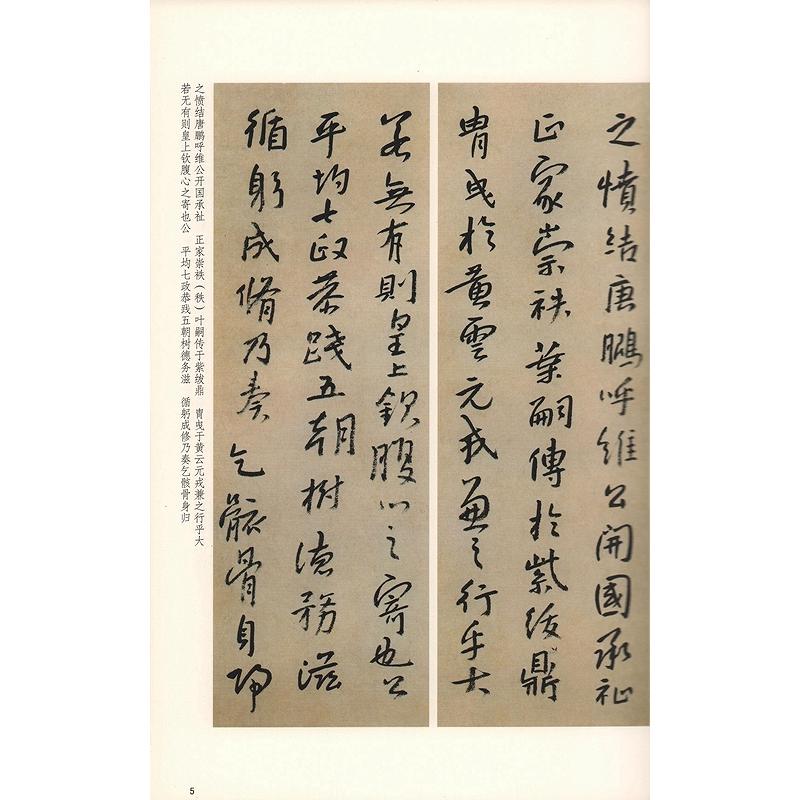 之憤結唐鵬呼維公開國承祉
正家崇袟葉嗣傳於紫紱鼎
胄曳於黃雲元戎兼之行乎大
若無有則皇上欽腹心之寄也公
平均七政恭踐五朝樹德務滋
循躬成脩乃奏乞骸骨自歸
之愤结唐鹏呼维公开国承祉　正家崇袟（秩）叶嗣传于紫绂鼎　胄曳于黄云元戎兼之行乎大
若无有则皇上钦腹心之寄也公　平均七政恭践五朝树德务滋　循躬成修乃奏乞骸骨身归
5